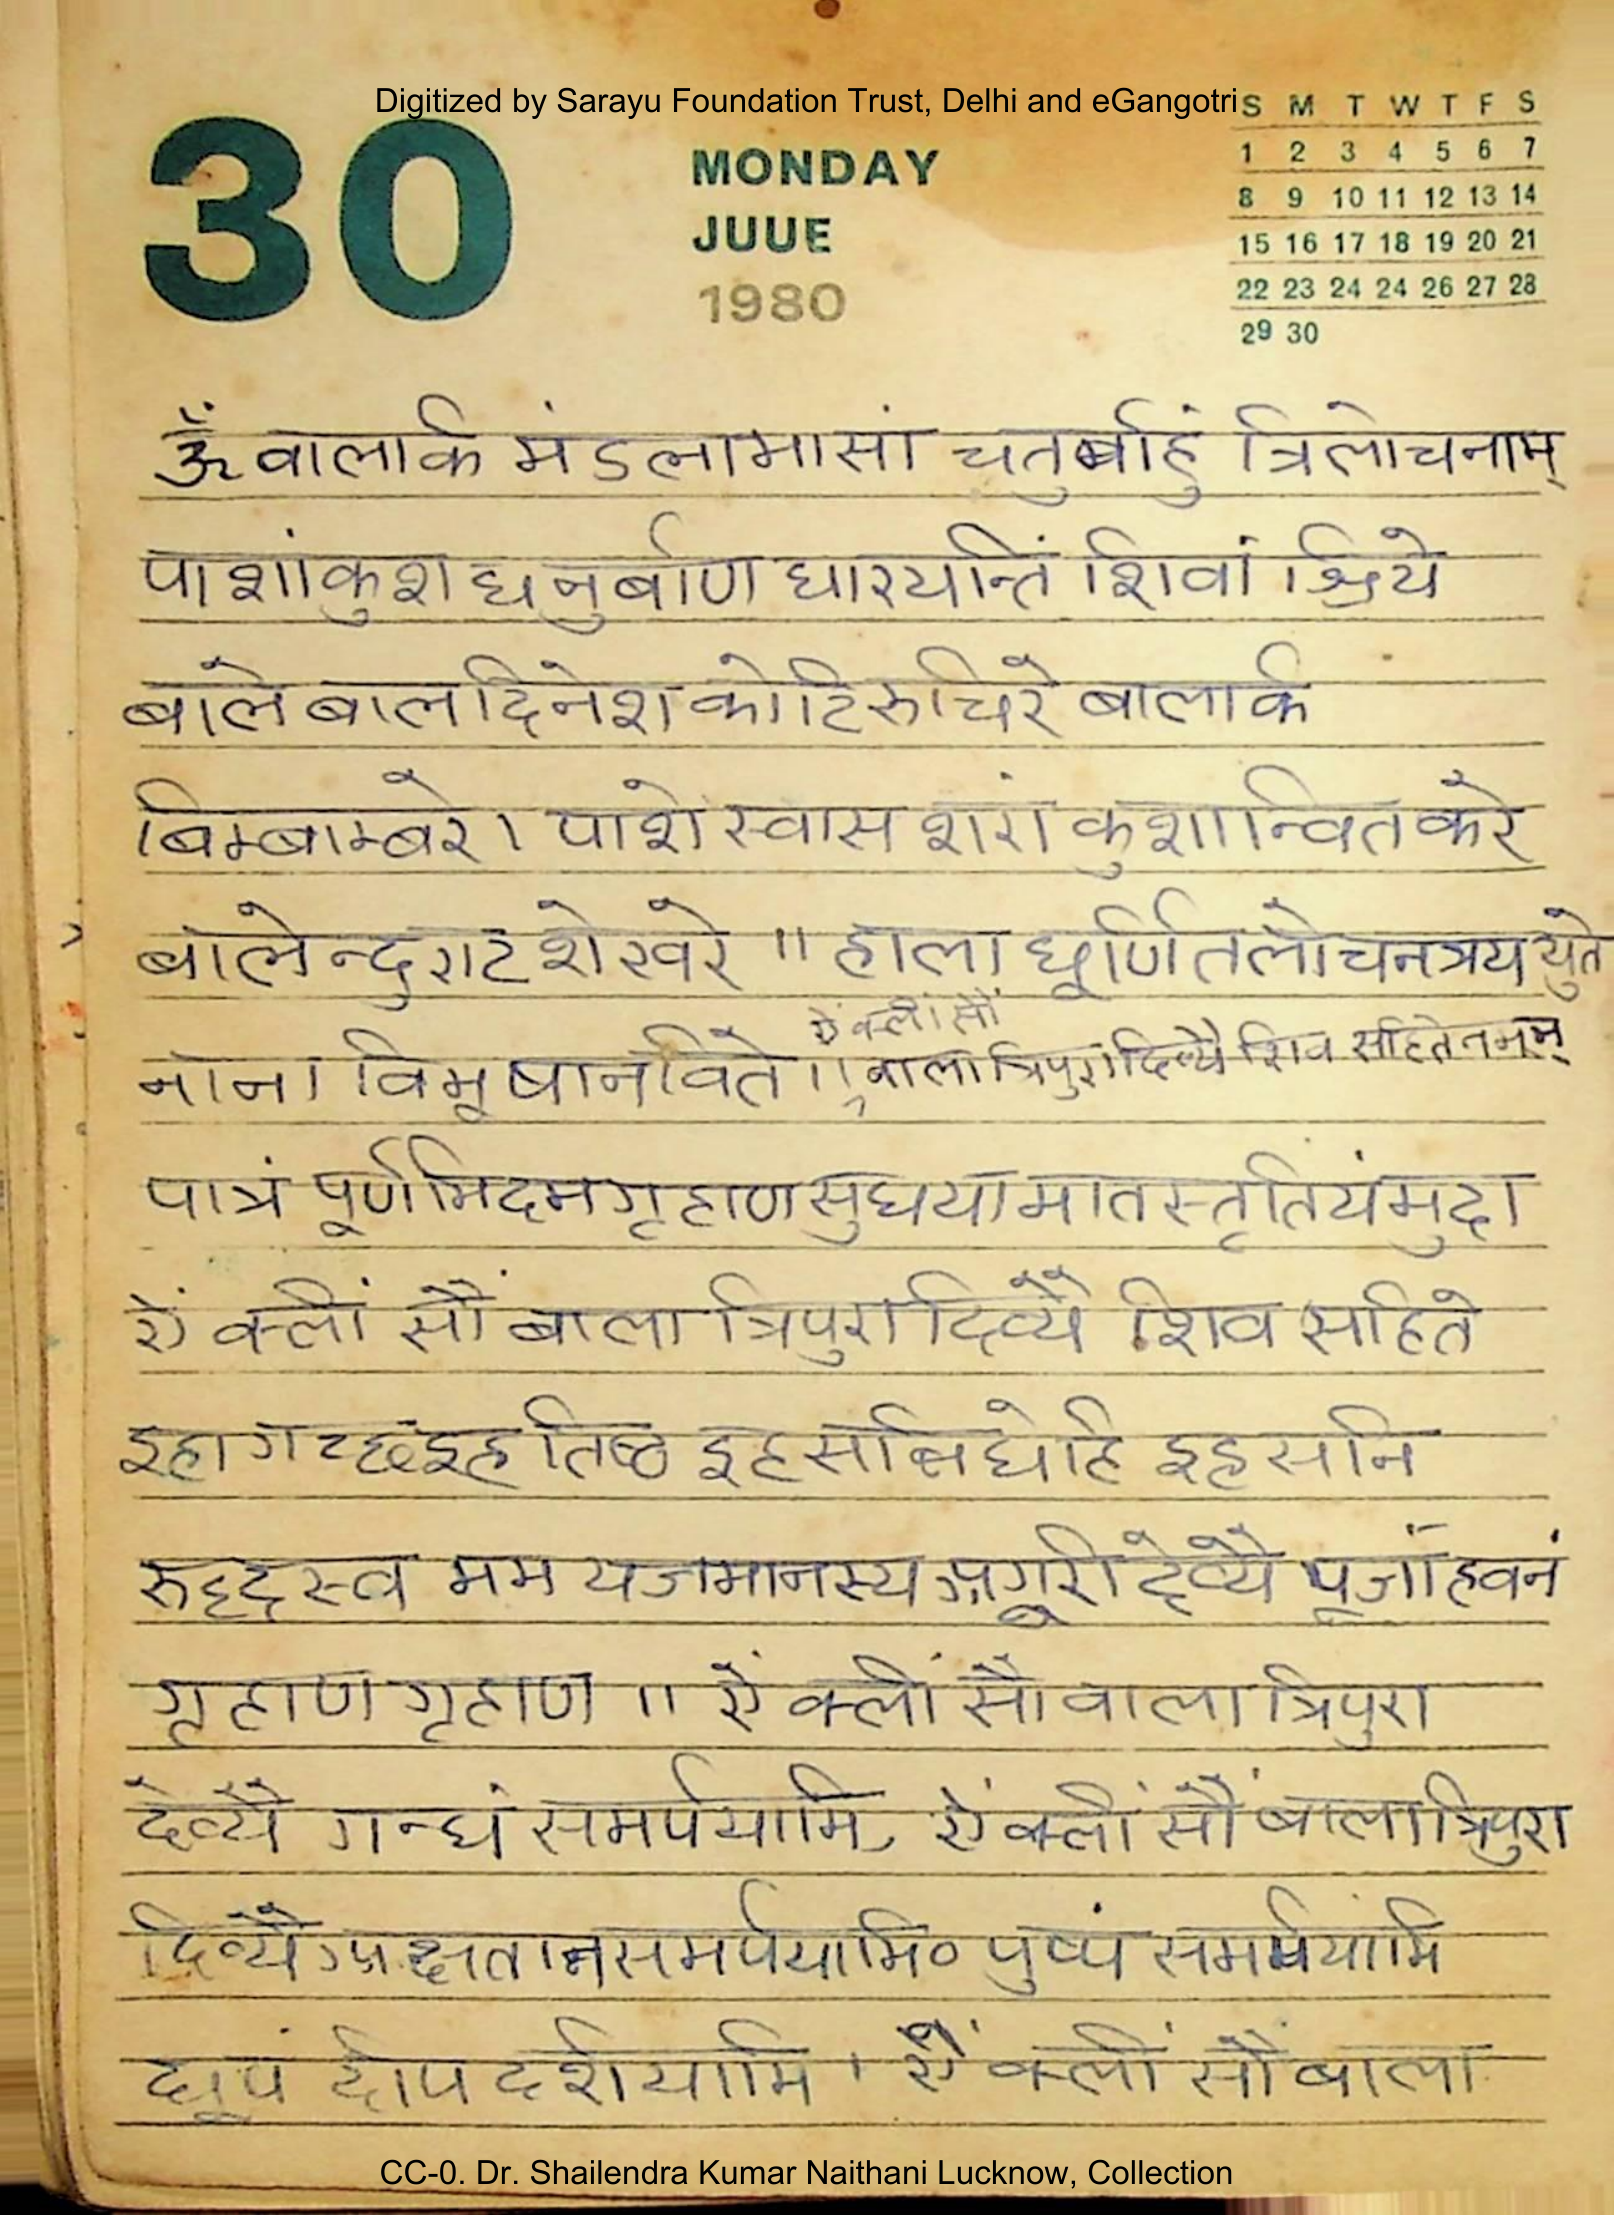 Digitized by Sarayu Foundation Trust, Delhi and eGangotri
30
MONDAY
JUUE
1980
S M T W T F S
1 2 3 4 5 6 7
8 9 10 11 12 13 14
15 16 17 18 19 20 21
22 23 24 24 26 27 28
29 30
ॐ वालार्क मंडलामासां चतुर्बाहुं त्रिलोचनाम्
पाशांकुश धनुर्बाण धारयन्तिं शिवां श्रिये
बाले बाल दिनेश कोटि रुचिरे बालार्क
बिम्बाम्बरे । पाशे स्वास शरां कुशान्वित करे
बालेन्दु राट शेखरे ॥ हाला घूर्णित लोचन त्रय युते
ऐं क्लीं सौं
नाना विभूषानविते ॥ बाला त्रिपुरा दिव्यै शिव सहिते नमम्
पात्रं पूर्णमिदम गृहाण सुधया मातस्तृतियं मुदा
ऐं क्लीं सौं बाला त्रिपुरा दिव्यै शिव सहिते
इहा गच्छ इह तिष्ठ इह सन्निधेहि इह सनि
रुद्दस्व मम यजमानस्य देव्यै पूजां हवनं
गृहाण गृहाण ॥ ऐं क्लीं सौं वाला त्रिपुरा
देव्यै गन्धं समर्पयामि, ऐं क्लीं सौं बाला त्रिपुरा
दिव्यै अक्षतान समर्पयामि० पुष्पं समर्पयामि
धूपं दीप दर्शयामि । ऐं क्लीं सौं बाला
CC-0. Dr. Shailendra Kumar Naithani Lucknow, Collection